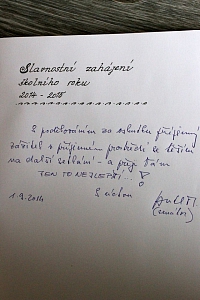 Slavnostní zahájení
školního roku
2014 - 2015
S poděkováním za velmi příjemný
zážitek v příjemném prostředí se těším
na další setkání - a přeji Vám
JEN TO NEJLEPŠÍ...!
S úctou
1.9.2014
(senátor)